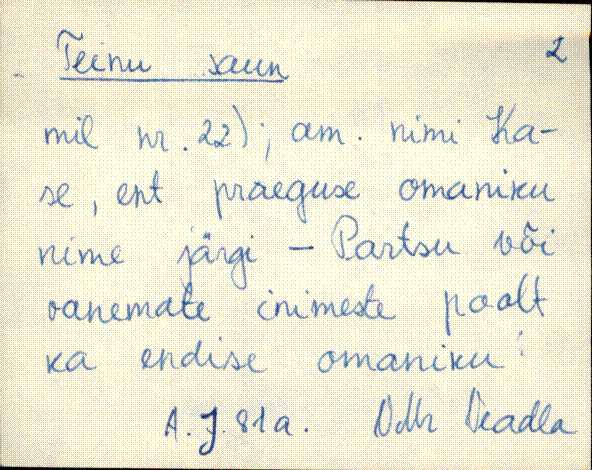 Teinu saun 2
mil nr. 22); am. nimi Ka-
se, ent praeguse omaniku
nime järgi - Partsu või
vanemate inimeste poolt
ka endise omaniku
A. J. 81a.